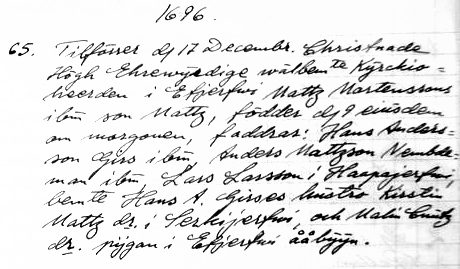 1696.
65. Tilförser dj 17 Decembr. Christnade
Högh Ehrewyrdige wälbemte Kyrckio=
heerden i Efjerfwi Mattz Mortenssons
ibm son Mattz, födder dj 9 eiusdem
om morgonen, faddrar: Hans Anders=
son Giss ibm, Anders Mattzson Nembde=
man ibm Lars Larsson i Haapajerfwi,
bemte Hans A. Gisses hustro Kirstin
Mattz dr. i Serkijerfwi, och Malin
dr. pijgan i Efjerfwi ååbyyn.